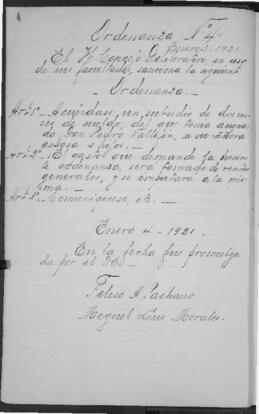 Ordenanza Nº 4
Enero 3-1921
El H. Consejo Deliberativo, en uso
de sus facultades, sanciona la siguiente
- Ordenanza. -
Art. 1º- Acuérdase, un subsidio de dos me
ses de sueldo, del que tenía asigna
do, Don Pedro Vallejo, a su señora
esposa e hijos. -
Art. 2º- El gasto que demande la presen
te ordenanza, será tomado de rentas
generales, y se imputará a la mis
ma. -
Art. 3º- Comuníquese, etc. -
Enero 4-1921.
En la fecha fue promulga
da por el D. E.
Feliso A. Pachano
Miguel Luis Morales.